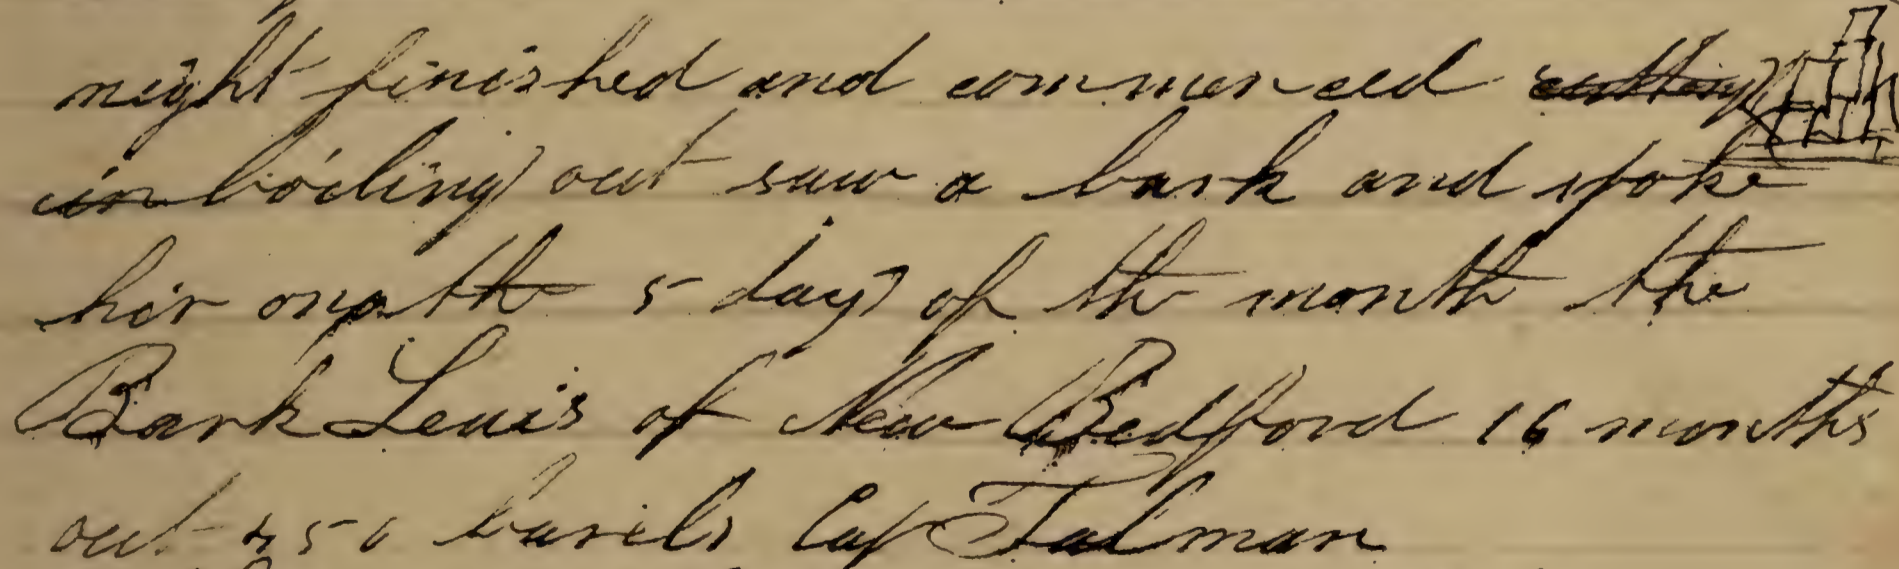 night finished and commenced cutting
in boiling out saw a bark and spoke
her on the 5 day of the month the
Bark Lewis of New Bedford 16 months
out 450 barils Cap Talman